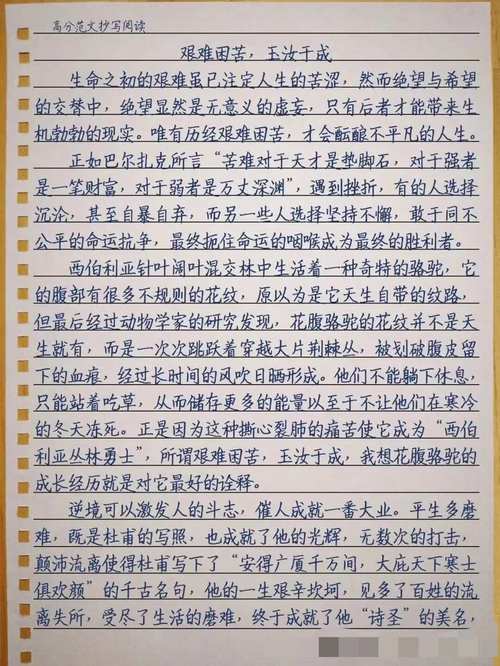 高分范文抄写阅读
艰难困苦，玉汝于成
生命之初的艰难虽已注定人生的苦涩，然而绝望与希望
的交替中，绝望显然是无意义的虚妄，只有后者才能带来生
机勃勃的现实。唯有历经艰难困苦，才会酝酿不平凡的人生。
正如巴尔扎克所言“苦难对于天才是垫脚石，对于强者
是一笔财富，对于弱者是万丈深渊”，遇到挫折，有的人选择
沉沦，甚至自暴自弃，而另一些人选择坚持不懈，敢于同不
公平的命运抗争，最终扼住命运的咽喉成为最终的胜利者。
西伯利亚针叶阔叶混交林中生活着一种奇特的骆驼，它
的腹部有很多不规则的花纹，原以为是它天生自带的纹路，
但最后经过动物学家的研究发现，花腹骆驼的花纹并不是天
生就有，而是一次次跳跃着穿越大片荆棘丛，被划破腹皮留
下的血痕，经过长时间的风吹日晒形成。他们不能躺下休息，
只能站着吃草，从而储存更多的能量以至于不让他们在寒冷
的冬天冻死。正是因为这种撕心裂肺的痛苦使它成为“西伯
利亚丛林勇士”，所谓艰难困苦，玉汝于成，我想花腹骆驼的
成长经历就是对它最好的诠释。
逆境可以激发人的斗志，催人成就一番大业。平生多磨
难，既是杜甫的写照，也成就了他的光辉，无数次的打击，
颠沛流离使得杜甫写下了“安得广厦千万间，大庇天下寒士
俱欢颜”的千古名句，他的一生艰辛坎坷，见多了百姓的流
离失所，受尽了生活的磨难，终于成就了他“诗圣”的美名，